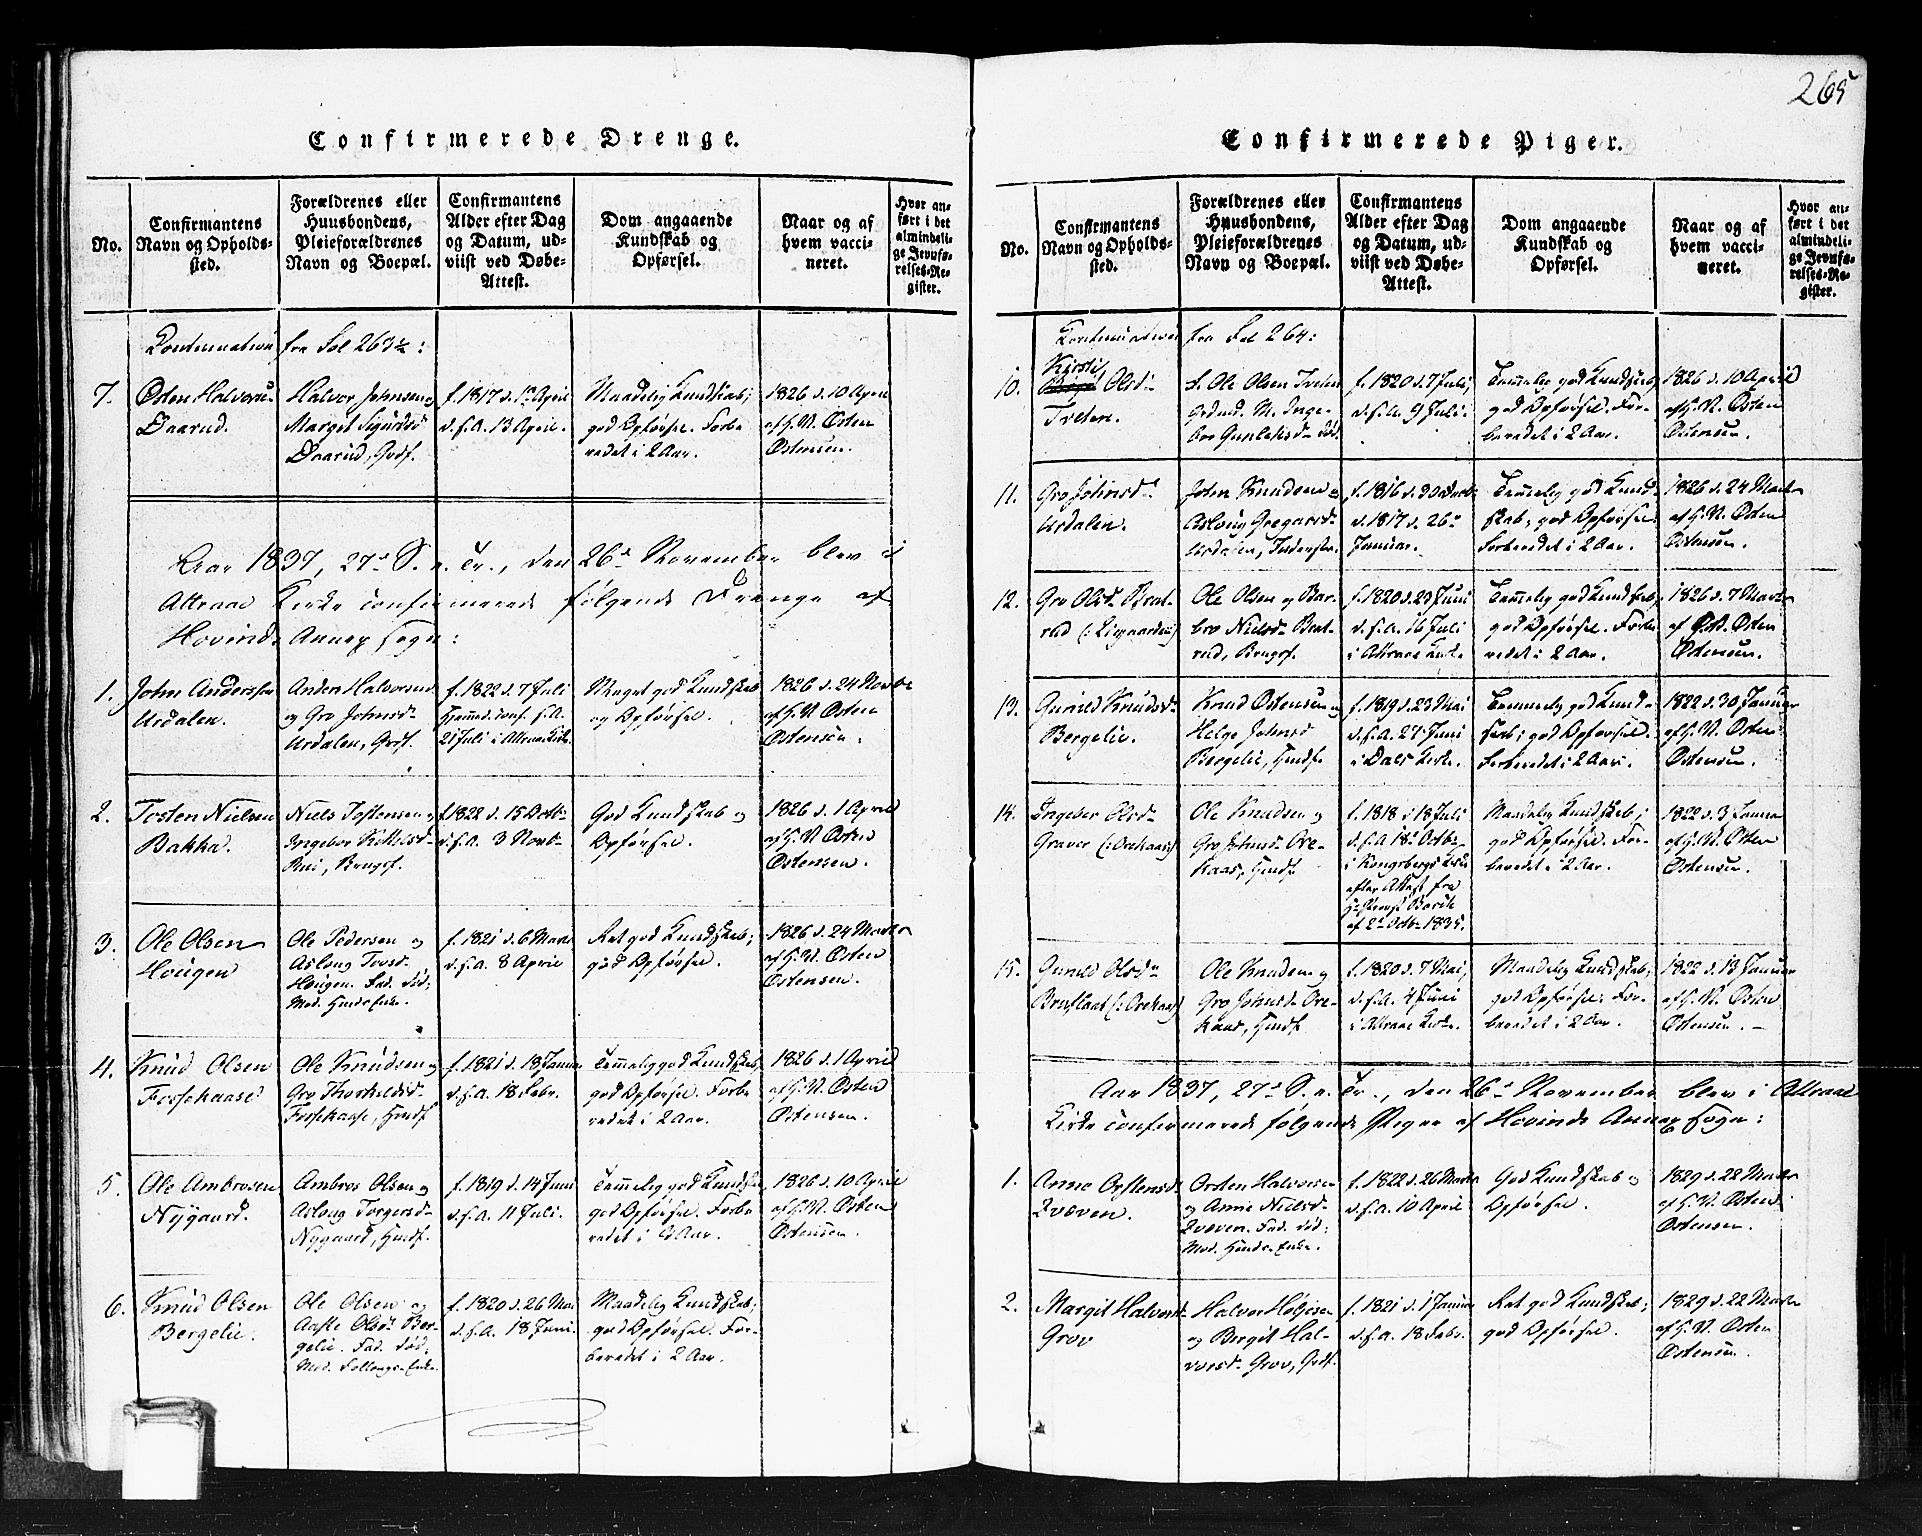 265
Confirmerede Drenge.
No.
Confirmantens
Navn og Opholds-
sted.
Forældrenes eller
Huusbondens,
Pleieforældrenes
Navn og Boepæl.
Confirmantens
Alder efter Dag
og Datum, ud-
viist ved Døbe-
Attest.
Dom angaaende
Kundskab og
Opførsel.
Naar og af
hvem vacci-
neret.
Hvor an-
ført i det
almindeli-
ge Jevnfø-
relses-Re-
gister.
Continuation fra Fol 263½:
7.
Østen Halvorsen
Daarud.
Halvor Johnsen og
Margit Sigurdsd
Daarud, Gdsf.
f. 1817 d. 1ste April
d.s.A. 13 April.
Maadelig Kundskab;
god Opførsel. Forbe
redet i 2 Aar.
1826 d. 10 April
af G. N. Østen
Østensen.
Aar 1837, 27de S. e. Tr., den 26de November blev i
Attraae Kirke confirmerede følgende Drenge af
Hovinds Annex Sogn:
1.
John Anderssen
Urdalen.
Anders Halvorsen
og Gro Johnsd.
Urdalen, Grdf.
f. 1822 d. 7 Juli
Hjemmed. conf. s.A.
21 Juli i Attraae Kirke.
Meget god Kundskab
og Opførsel.
1826 d. 24 Marts
af G. N. Østen
Østensen.
2.
Tosten Nielsen
Bakka.
Niels Tostensen og
Ingebor Kittelsd.
Rui, Brugsf.
f. 1822 d. 15 Octb.
d.s.A. 3 Novb.
God Kundskab og
Opførsel.
1826 d. 1 April
af G. N. Østen
Østensen.
3.
Ole Olsen
Hougen
Ole Pedersen og
Aslong Tovsd.
Hougen. Fad. død;
Mod. Huusm. Enke.
f. 1821 d. 6 Marts
d.s.A. 8 April
Ret god Kundskab;
god Opførsel.
1826 d. 24 Marts
af G. N. Østen
Østensen.
4.
Knud Olsen
Fossekaase
Ole Knudsen og
Gro Thorkildsd.
Fossekaase, Hmdsf
f. 1821 d. 18 Januar
d.s.A. 18 Febr.
Temmelig god Kundskab,
god Opførsel. Forbe
redet i 2 Aar.
1826 d. 1 April
af G. N. Østen
Østensen.
5.
Ole Ambrosen
Nygaard.
Ambros Olsen og
Aslong Torgersd.
Nygaard, Hmdsf.
f. 1819 d. 14 Juni
d.s.A. 11 Juli.
Temmelig god Kundskab,
god Opførsel. Forbe
redet i 2 Aar.
1826 d. 10 April
af G. N. Østen
Østensen.
6.
Knud Olsen
Bergelie.
Ole Olsen og
Aaste Olsd. Ber-
gelie. Fad. død.
Mod. Enke.
f. 1820 d. 26 Mai
d.s.A. 18 Juni.
Maadelig Kundskab;
god Opførsel. For-
beredet i 2 Aar.
Confirmerede Piger.
No.
Confirmantens
Navn og Opholds-
sted.
Forældrenes eller
Huusbondens,
Pleieforældrenes
Navn og Boepæl.
Confirmantens
Alder efter Dag
og Datum, ud-
viist ved Døbe-
Attest.
Dom angaaende
Kundskab og
Opførsel.
Naar og af
hvem vacci-
neret.
Hvor an-
ført i det
almindeli-
ge Jevnfø-
relses-Re-
gister.
Continuation fra Fol 264:
10.
Kjersti
Olsd.
Tveten.
f. Ole Olsen Tveten
Grdmd. M. Inge-
bor Gunleiksd. død.
f. 1820 d. 7 Juli,
d.s.A. 9 Juli.
Temmelig god Kundskab
god Opførsel. For-
beredet i 2 Aar.
1826 d. 10 April
af G. N. Østen
Østensen.
11.
Gro Johnsd.
Urdalen.
John Knudsen og
Aslong Gregarsd.
Urdalen,
f. 1816 d. 30 Decb.
d. 1817 d. 26de
Januar.
Temmelig god Kund-
skab, god Opførsel.
forberedet i 2 Aar.
1826 d. 24 Marts
af G. N. Østen
Østensen.
12.
Gro Olsd. Brat-
rud
Ole Olsen og Bar-
bro Nielsd. Brat-
rud, Brugsf.
f. 1820 d. 23 Juni
d.s.A. 16 Juli
i Attraae Kirke.
Temmelig god Kundskab,
god Opførsel. Forbe
redet i 2 Aar.
1826 d. 7 Marts
af G. N. Østen
Østensen.
13.
Gunild Knudsd.
Bergelie.
Knud Østensen og
Helge Johnsd
Bergelie, Hmdsf.
f. 1819 d. 23 Mai
d.s.A. 27 Juni
i Dals Kirke.
Temmelig god Kund-
skab; god Opførsel.
forberedet i 2 Aar.
1822 d. 30 Januar
af G. N. Østen
Østensen.
14.
Ingebor Olsd.
Graver (: Orekaas)
Ole Knudsen og
Gro Johnsd. Ore-
kaas, Hmdsf
f. 1818 d. 18 Juli
d.s.A 18de Octb.
i Kongsbergs Kirke
efter Attest fra
af 2de Octb. 1835.
Maadelig Kundskab;
god Opførsel. For-
beredet i 2 Aar.
1822 d. 3 Januar
af G. N. Østen
Østensen.
15.
Gunild Olsd.
Brufladt (: Orekaas)
Ole Knudsen og
Gro Johnsd. Ore-
kaas, Hmdsf.
f. 1820 d. 7 Mai,
d.s.A. 4 Juni
i Attraae Kirke.
Maadelig Kundskab;
god Opførsel. For-
beredet i 2 Aar.
1822 d. 13 Januar
af G. N. Østen
Østensen.
Aar 1837, 27de S. e. Tr., den 26de November blev i Attraae
Kirke confirmerede følgende Piger af Hovinds Annex Sogn:
1.
Anne Orstensd.
Qvæven.
Orsten Halvorsen
og Anne Nielsd.
Qvæven. Fad. død;
Mod. Huusm. Enke.
f. 1822 d. 26 Marts
d.s.A. 10 April
God Kundskab og
Opførsel.
1829 d. 22 Marts
af G. N. Østen
Østensen.
2.
Margit Halvorsd.
Grov
Halvor Høljesen
og Bergit Hal-
vorsd. Grov, Grdf.
f. 1821 d. 1 Januar
d.s.A. 18 Febr.
Ret god Kundskab;
god Opførsel.
1829 d. 22 Marts
af G. N. Østen
Østensen.